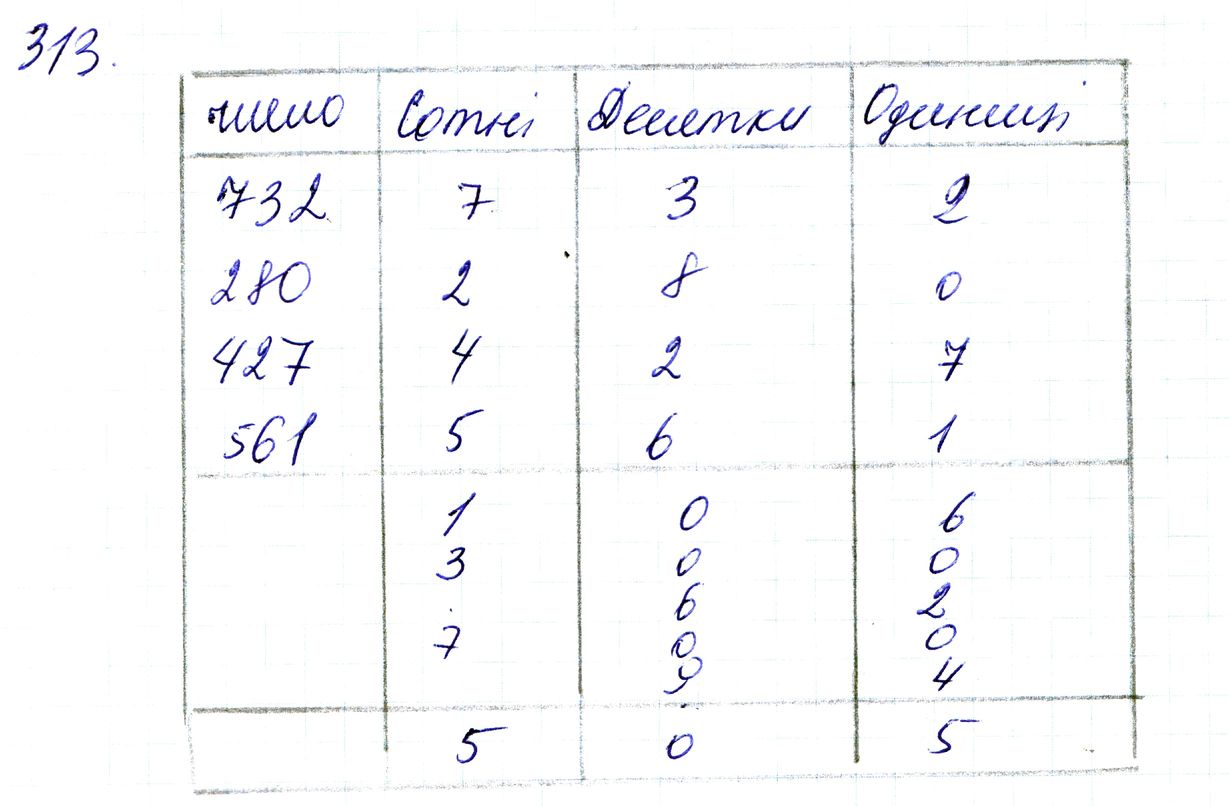 313.
число Сотні Десятки Одиниці
732 7 3 2
280 2 8 0
427 4 2 7
561 5 6 1
1 0 6
3 0 0
6 2
7 0 0
9 4
5 0 5